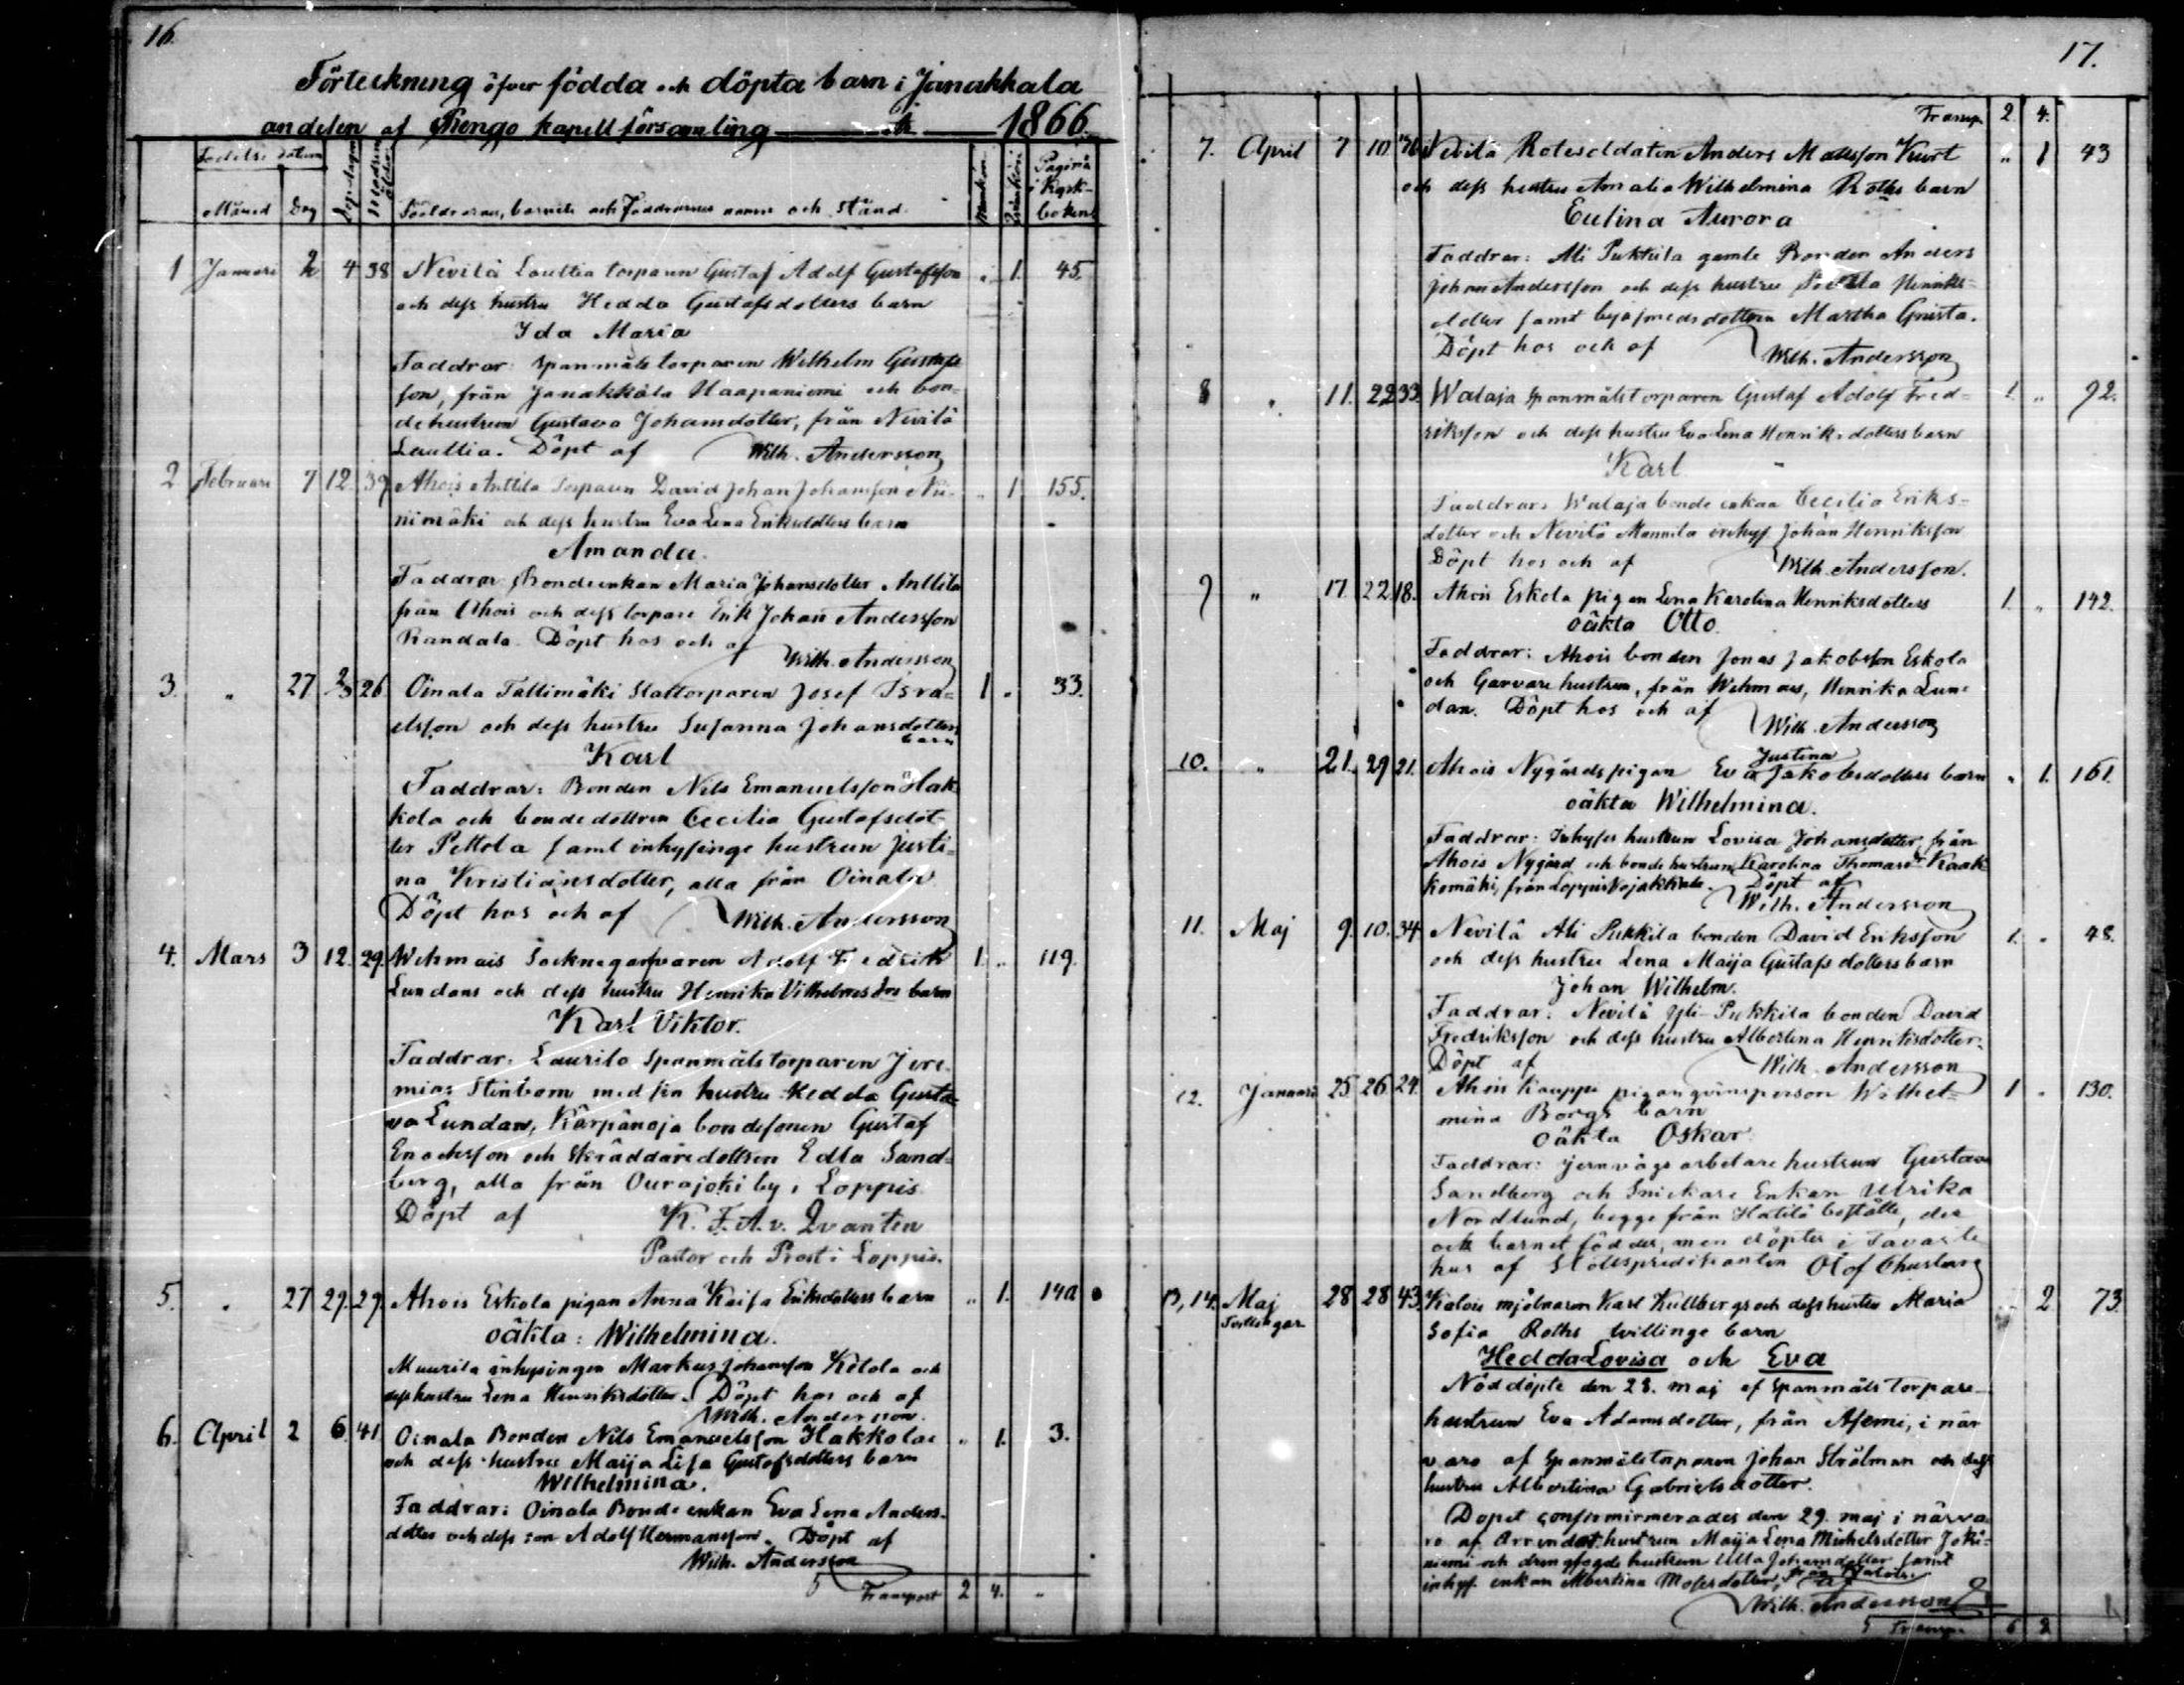 16.
Förteckning öfver födda och döpta barn i Janakkala
andelen af Rengo kapell församling år 1866.
Födelse datum
Månad Dag Döpelsedagen Modrens ålder Föräldrarnes, barnets och Faddrarnes namn och stånd. Mankön Qvinkön Pagina i Kyrkboken
1 Januari 2 4 38 Nevilä Lauttia torparen Gustaf Adolf Gustafsson " 1. 45.
och dess hustru Hedda Gustafsdotters barn
Ida Maria
Faddrar: Spanmåls torparen Wilhelm
son, från Janakkala Haapaniemi och bon-
dehustrun Gustava Johansdotter, från Nevilä
Lauttia. Döpt af Wilh. Andersson
2 Februari 7 12 39 Ahois Anttila Torparen David Johan Johansson Nii- " 1 155.
nimäki och dess hustru Eva Lena Eriksdotters barn
Amanda.
Faddrar: Bondeenkan Maria Johansdotter Anttila
från Ahois och dess torpare Erik Johan Andersson
Randala. Döpt hos och af
Wilh. Andersson
3. " 27 2/3 26 Oinala Tallimäki Stattorparen Josef Isra= 1 " 33.
elsson och dess hustru Susanna Johansdotters
barn
Karl
Faddrar: Bonden Nils Emanuelsson Hak-
kola och bondedottren Cecilia Gustafsdot-
ter Pettola samt inhysinge hustrun Justi-
na Kristiansdotter, alla från Oinala
Döpt hos och af Wilh. Andersson
4. Mars 3 12. 29. Wehmais Socknegarfvaren Adolf Fredrik 1. " 119.
Lundans och dess hustru Henrika Vilhelms barn
Karl Viktor.
Faddrar: Laurila Spanmåls torparen Jere-
mias Stenbom med sin hustru Hedda Gusta-
va Lundan, Kärpänoja bondesonen Gustaf
Enochsson och Skräddaredottren Edla Sand-
berg, alla från Ourajoki by i Loppis.
Döpt af K. F. A. v. Qvanten
Pastor och Prost i Loppis.
5. " 27 29. 29. Ahois Eskola pigan Anna Kaisa Eriksdotters barn " 1. 140
oäkta: Wilhelmina.
Muurila inhysingen Markus Johansson Kölola och
dess hustru Lena Henriksdotter. Döpt hos och af
Wilh. Andersson.
6. April 2 6. 41. Oinala Bonden Nils Emanuelsson Hakkolas " 1. 3.
och dess hustru Maija Lisa Gustafsdotters barn
Wilhelmina.
Faddrar: Oinala Bonde enkan Eva Lena Anders-
dotter och dess son Adolf Hermansson. Döpt af
Wilh. Andersson
Transport 2 4.
17.
Transp. 2. 4.
7. April 7 10 Nevilä Rotesoldaten Anders Mattsson Kurt " 1 43
och dess hustru Amalia Wilhelmina Roths barn
Eulina Aurora
Faddrar: Ali Pukkila gamle Bonden Anders
Johan Andersson och dess hustru Henriks-
dotter samt bysmedsdottren Martha Grista.
Döpt hos och af Wilh. Andersson
8 " 11. 22 33. Walaja Spanmåls torparen Gustaf Adolf Fred- 1. " 92.
riksson och dess hustru Eva Lena Henriksdotters barn
Karl
Faddrar: Walaja bonde enkan Cecilia Eriks-
dotter och Nevilä Mannila inhys. Johan Henriksson
Döpt hos och af Wilh. Andersson.
9 " 17. 22. 18. Ahois Eskola pigan Lena Karolina Henriksdotters 1. " 142.
oäkta Otto.
Faddrar: Ahois bonden Jonas Jakobsson Eskola
och Garvare hustrun, från Wehmais, Henrika Lun-
dan. Döpt hos och af
Wilh. Andersson
10. " 21. 29 21. Ahois Nygårds pigan Eva Justina Jakobsdotters barn " 1. 161.
oäkta Wilhelmina.
Faddrar: Inhyses hustrun Lovisa Johansdotter, från
Ahois Nygård och bondehustrun Karolina Thomasdr Kaak-
komäki, från Loppis Vojakkala. Döpt af
Wilh. Andersson
11. Maj 9. 10. 34 Nevilä Ali Pukkila bonden David Eriksson 1. " 48.
och dess hustru Lena Maija Gustafsdotters barn
Johan Wilhelm.
Faddrar: Nevilä Yli-Pukkila bonden David
Fredriksson och dess hustru Albertina Henriksdotter.
Döpt af Wilh. Andersson
12. Januari 25 26 24. Ahois Kauppi pigan qvinsperson Wilhel- 1 " 130.
mina Borgs barn
oäkta Oskar.
Faddrar: jernvägs arbetare hustrun Gustava
Sandberg och Snickare Enkan Ulrika
Nordlund, begge från Hätilä boställe, der
ock barnet föddes, men döptes i Tavaste
hus af Slottspredikanten Olof
13, 14. Maj 28 28 43. Kalois mjölnaren Karl Kullbergs och dess hustru Maria " 2 73.
Tvillingar Sofia Roths tvillinge barn
Hedda Lovisa och Eva
Nöddöpte den 28. maj af Spanmåls torpare-
hustrun Eva Adamsdotter, från Asemi, i när
varo af Spanmålstorparen Johan Strålman och dess
hustru Albertina Gabrielsdotter.
Dopet confirmerades den 29. maj i närva-
ro af Arrendat. hustrun Maija Lena Michelsdotter Joki-
niemi och drengfogde hustrun Ulla Johansdotter samt
inhys. enkan Albertina Mosesdotter, från Kalois. af
Wilh. Andersson
Transp. 6 8